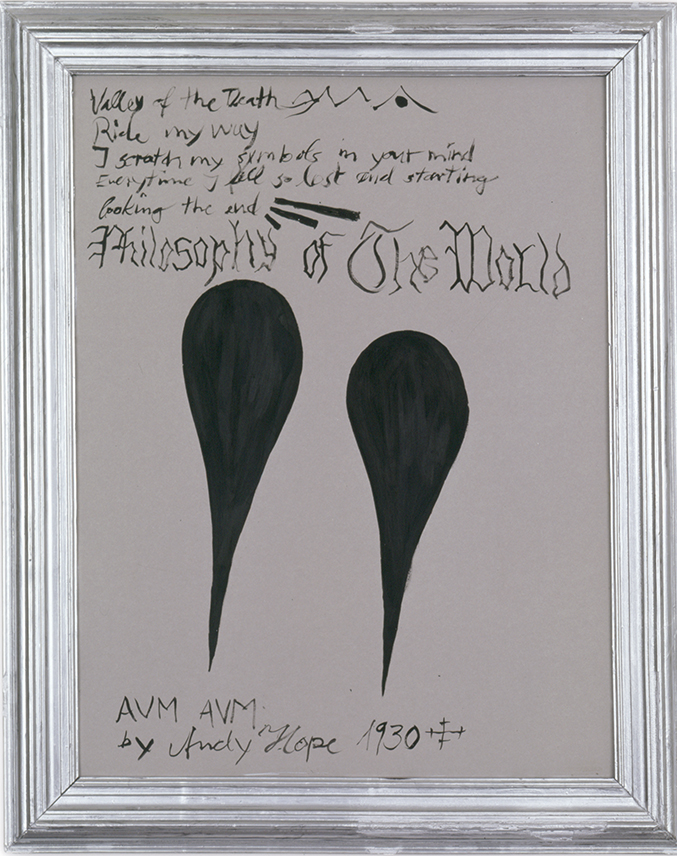 Valley of the Death
Ride my way
I scratch my symbols in your mind
Everytime I fell so lost and starting
looking the end
Philosophy of The World
AVM AVM
by Andy Hope 1930